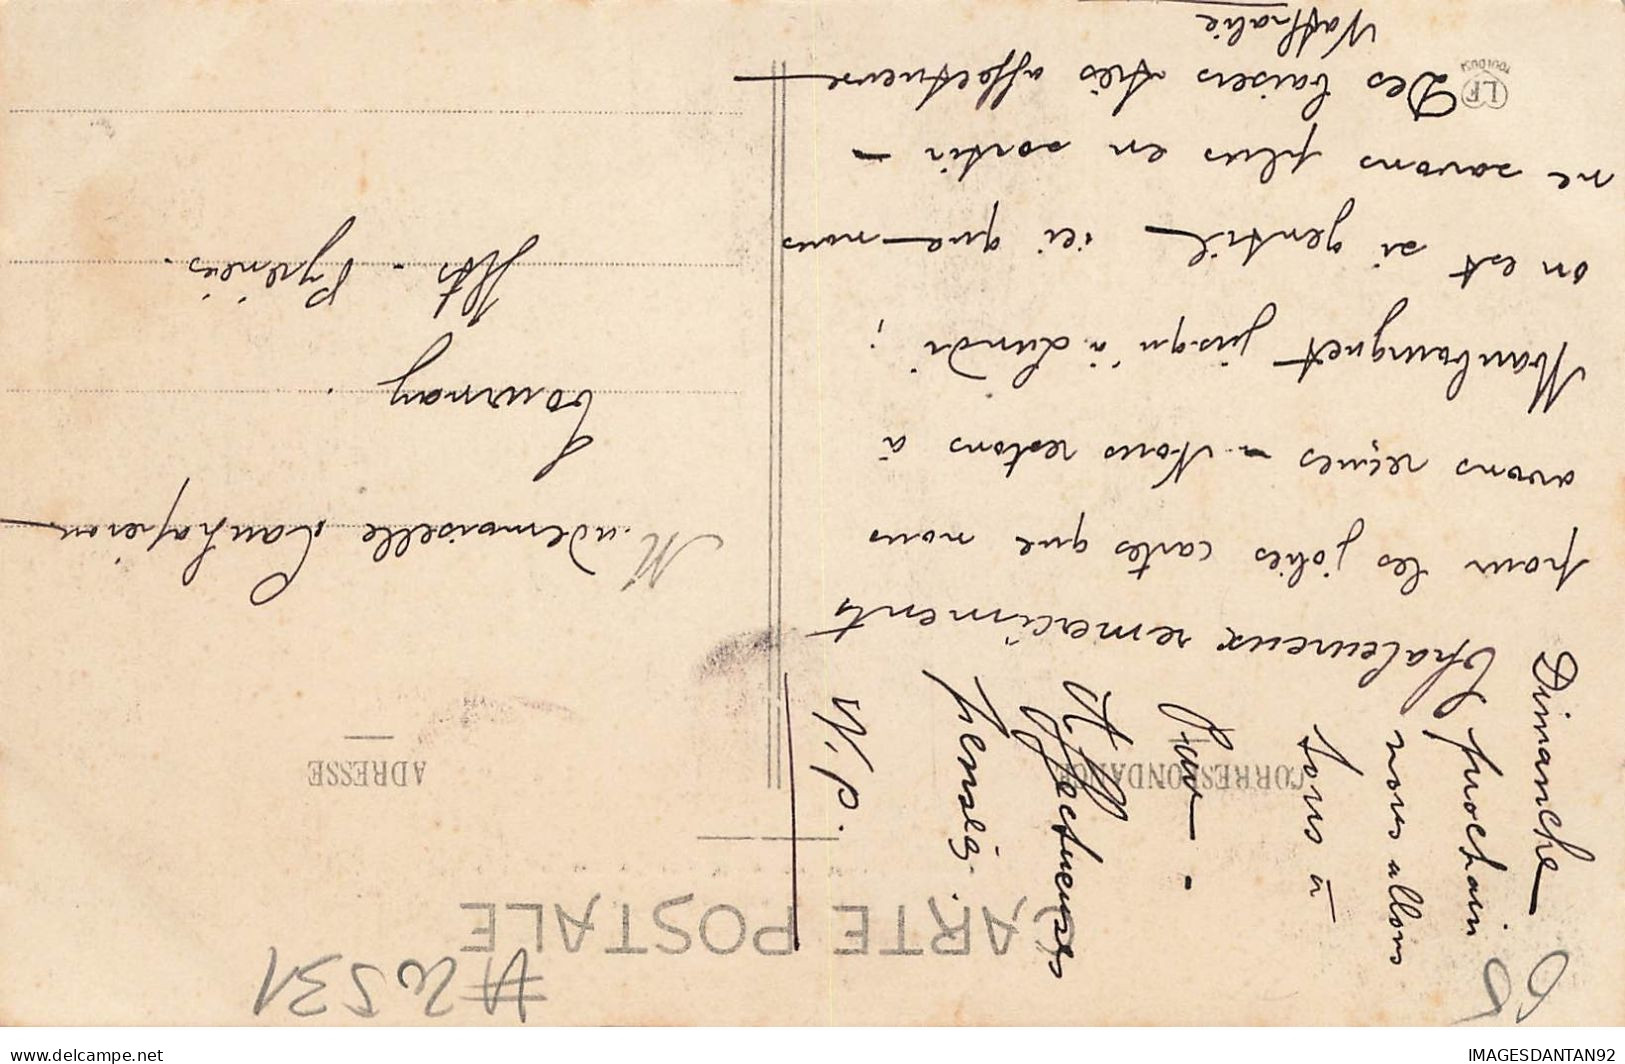 CARTE POSTALE
CORRESPONDANCE
ADRESSE
Chaleureux remerciments
pour les jolies cartes que nous
avons reçues - Nous restons à
Maubourguet jusqu'à Lundi ;
on est si gentil ici que nous
ne savons plus en sortir -
Des baisers très affectueux
Nathalie
Dimanche
prochain
nous allons
tous à
Affectueuses
pensées.
N. P.
Mademoiselle
Tournay.
Htes - Pyrénées.
LF
TOULOUSE
#20531
65
IMAGESDANTAN92
delcampe.net